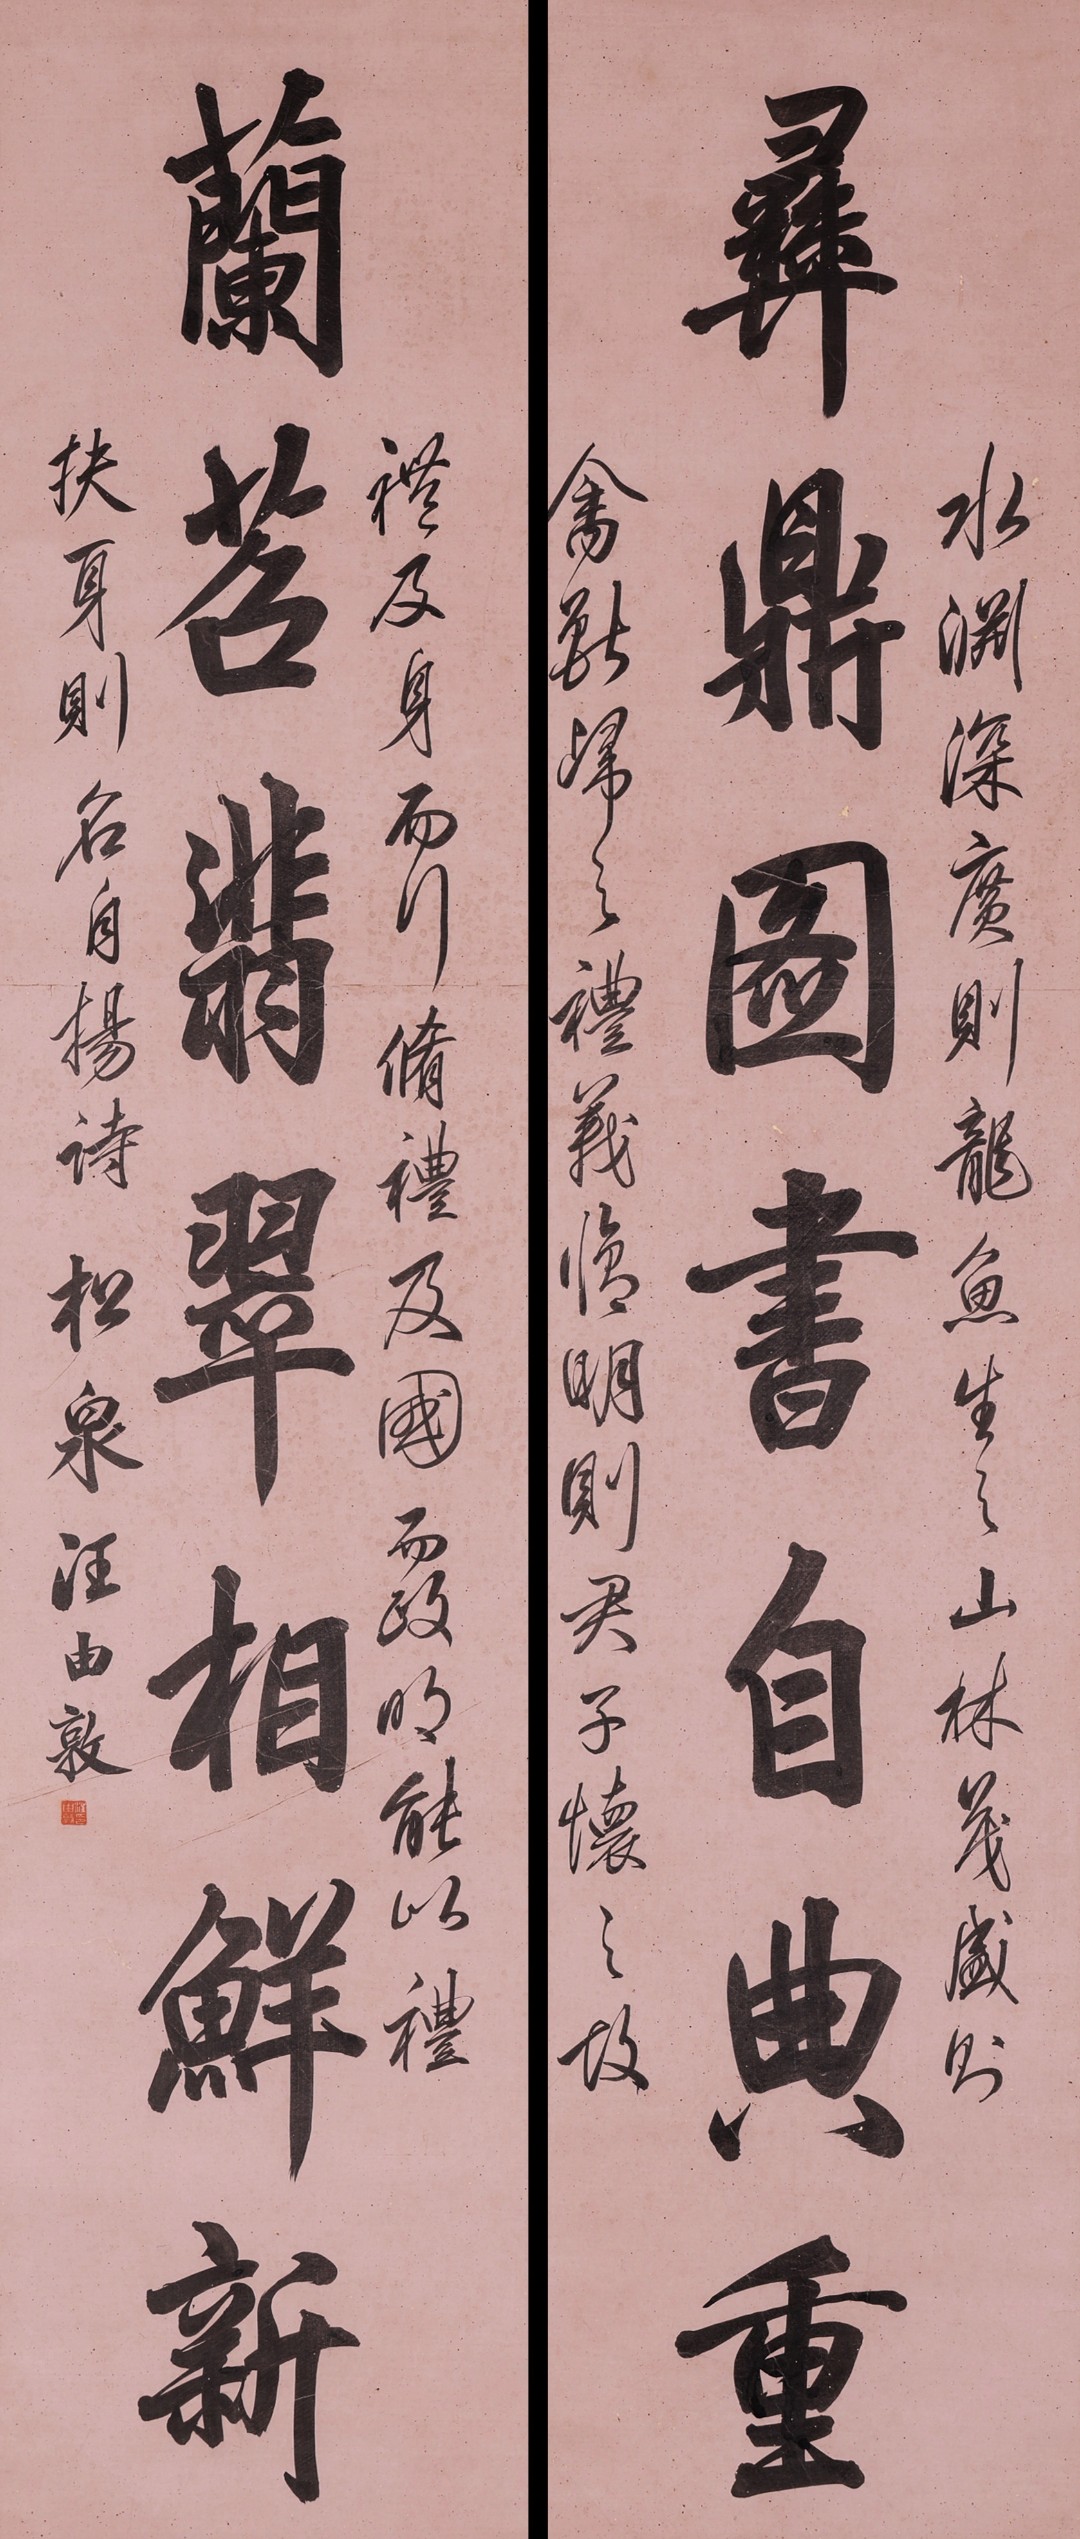 水淵深廣則龍魚生之山林茂盛則
彝鼎圖書自典重
禽獸歸之禮義脩明則君子懷之故
禮及身而行脩禮及國而政明能以禮
蘭苕翡翠相鮮新
扶身則名自揚詩 松泉汪由敦